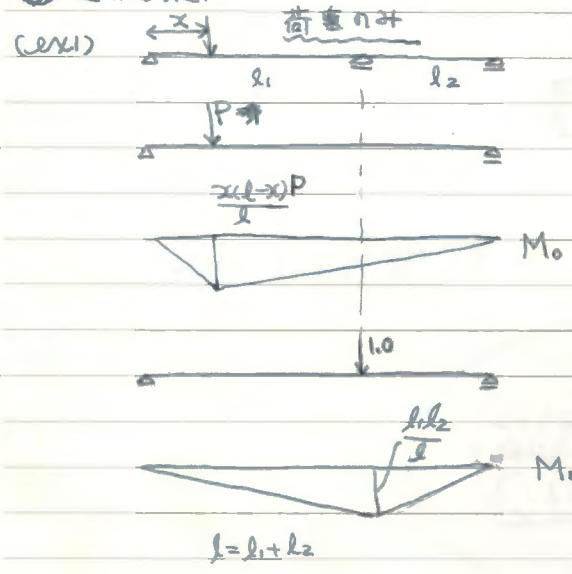 (ex1)
x
荷重のみ
l₁ l₂
P
x(l-x)P
l
M₀
1.0
l₁l₂
l
M₁
l=l₁+l₂